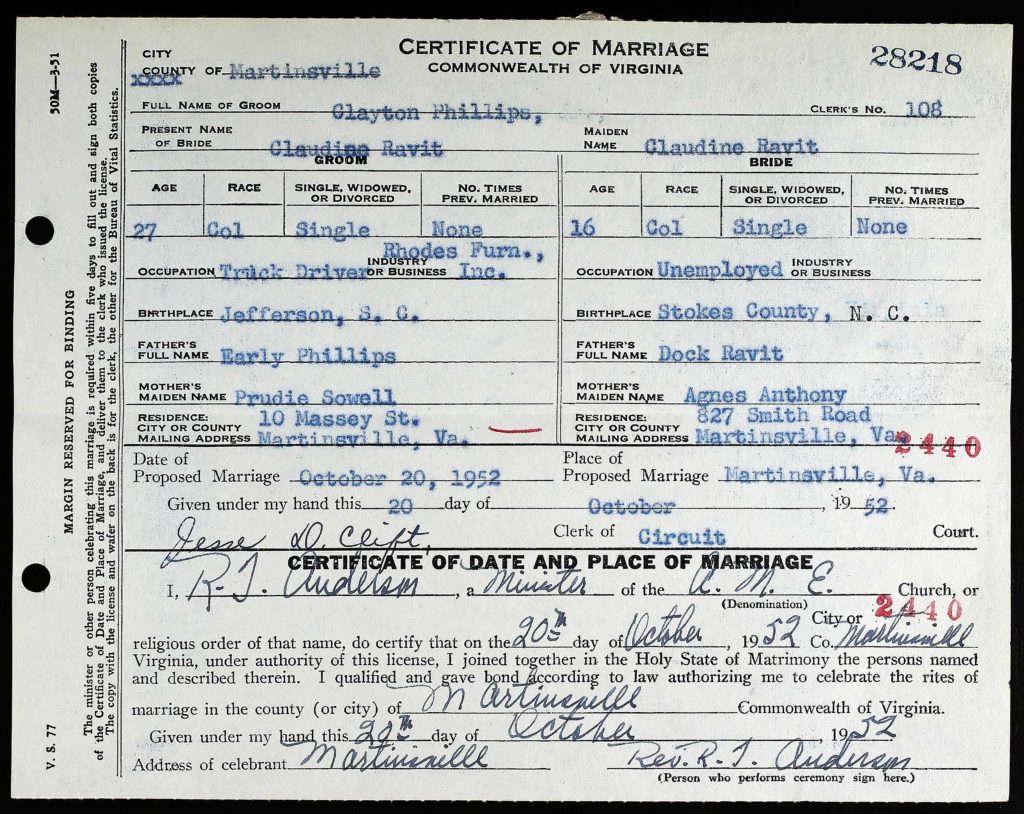 CERTIFICATE OF MARRIAGE
COMMONWEALTH OF VIRGINIA
28218
CITY
COUNTY OF Martinsville
xxxx
FULL NAME OF GROOM Clayton Phillips, CLERK'S NO. 108
PRESENT NAME OF BRIDE Claudine Ravit MAIDEN NAME Claudine Ravit
GROOM BRIDE
AGE RACE SINGLE, WIDOWED, OR DIVORCED NO. TIMES PREV. MARRIED AGE RACE SINGLE, WIDOWED, OR DIVORCED NO. TIMES PREV. MARRIED
27 Col Single None 16 Col Single None
OCCUPATION Truck Driver INDUSTRY OR BUSINESS Rhodes Furn., Inc. OCCUPATION Unemployed INDUSTRY OR BUSINESS
BIRTHPLACE Jefferson, S. C. BIRTHPLACE Stokes County, N. C.
FATHER'S FULL NAME Early Phillips FATHER'S FULL NAME Dock Ravit
MOTHER'S MAIDEN NAME Prudie Sowell MOTHER'S MAIDEN NAME Agnes Anthony
RESIDENCE: 10 Massey St. RESIDENCE: 827 Smith Road
CITY OR COUNTY CITY OR COUNTY
MAILING ADDRESS Martinsville, Va. MAILING ADDRESS Martinsville, Va.
2440
Date of Proposed Marriage October 20, 1952 Place of Proposed Marriage Martinsville, Va.
Given under my hand this 20 day of October, 1952.
Jesse D. Clift, Clerk of Circuit Court.
CERTIFICATE OF DATE AND PLACE OF MARRIAGE
I, R. T. Anderson, a Minister of the A. M. E. Church, or
(Denomination)
2440
religious order of that name, do certify that on the 20th day of October 1952 City or Co. Martinsville
Virginia, under authority of this license, I joined together in the Holy State of Matrimony the persons named
and described therein. I qualified and gave bond according to law authorizing me to celebrate the rites of
marriage in the county (or city) of Martinsville Commonwealth of Virginia.
Given under my hand this 20th day of October, 1952
Address of celebrant Martinsville Rev. R. T. Anderson
(Person who performs ceremony sign here.)
50M—3-51
MARGIN RESERVED FOR BINDING
V. S. 77
The minister or other person celebrating this marriage is required within five days to fill out and sign both copies
of the Certificate of Date and Place of Marriage, and deliver them to the clerk who issued the license.
The copy with the license and wafer on the back is for the clerk, the other for the Bureau of Vital Statistics.